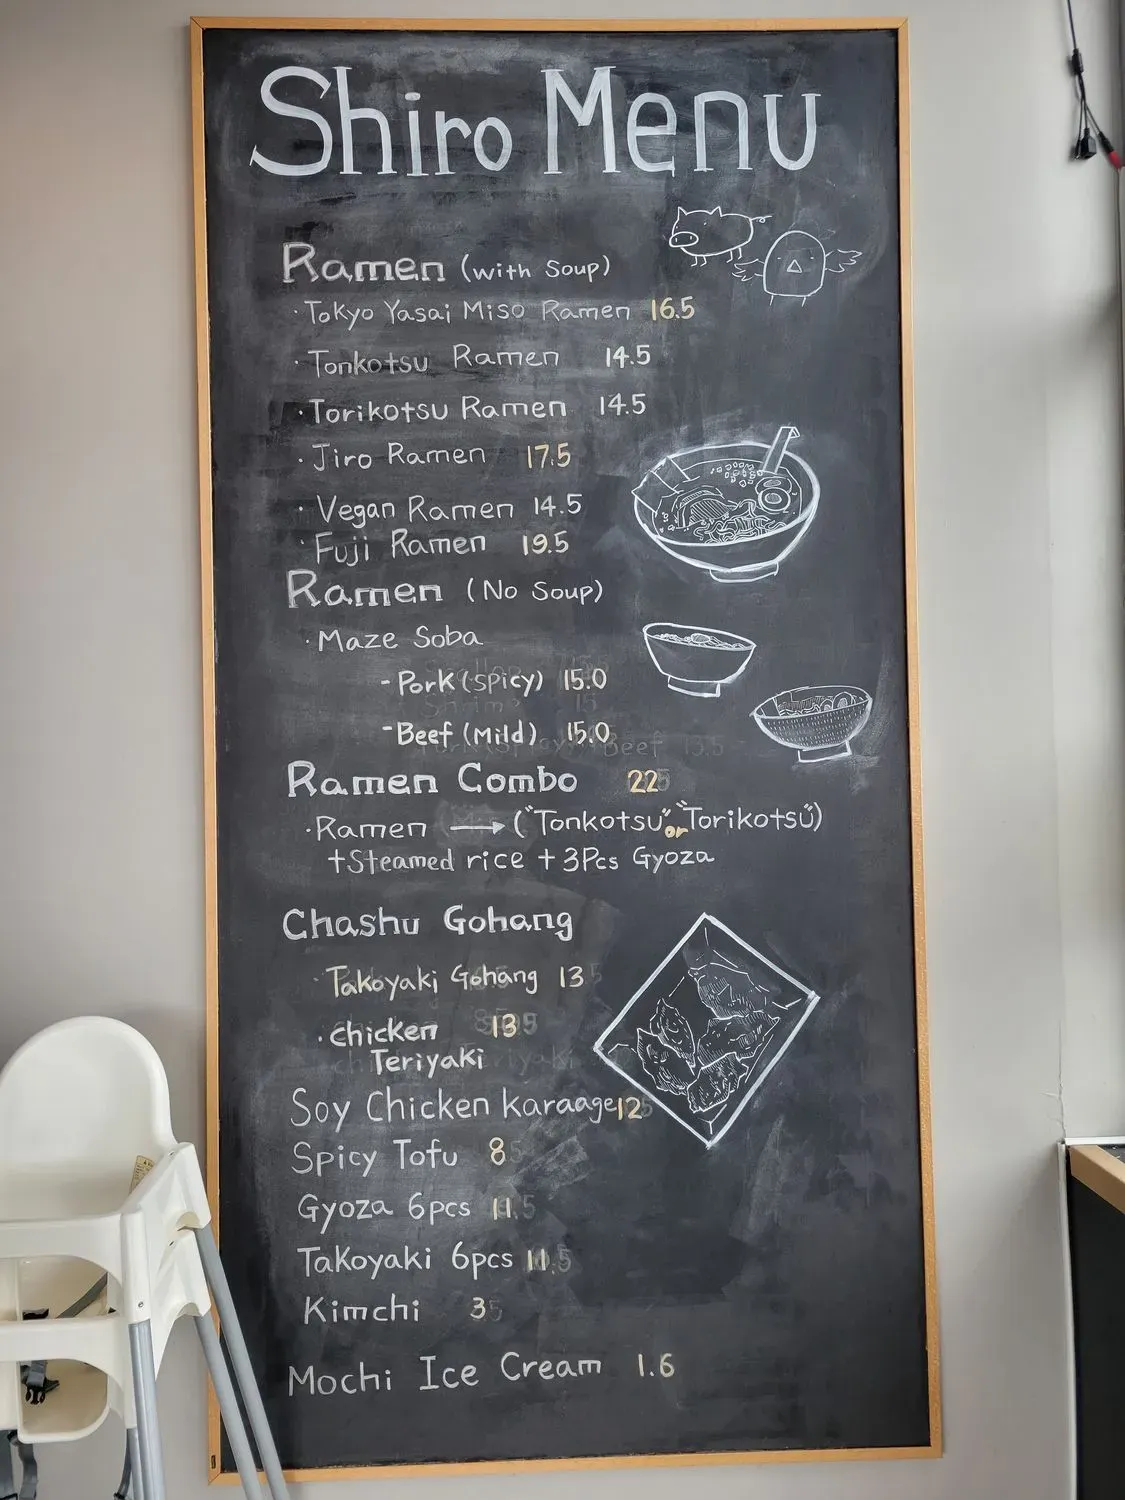 Shiro Menu
Ramen (with Soup)
· Tokyo Yasai Miso Ramen 16.5
· Tonkotsu Ramen 14.5
· Torikotsu Ramen 14.5
· Jiro Ramen 17.5
· Vegan Ramen 14.5
· Fuji Ramen 19.5
Ramen (No Soup)
· Maze Soba
- Pork (Spicy) 15.0
- Beef (Mild) 15.0
Ramen Combo 22
· Ramen → ("Tonkotsu" or "Torikotsu")
+ Steamed rice + 3Pcs Gyoza
Chashu Gohang
· Takoyaki Gohang 13
· Chicken 13
Teriyaki
Soy Chicken karaage 12
Spicy Tofu 8
Gyoza 6pcs 11
Takoyaki 6pcs 11
Kimchi 3
Mochi Ice Cream 1.6